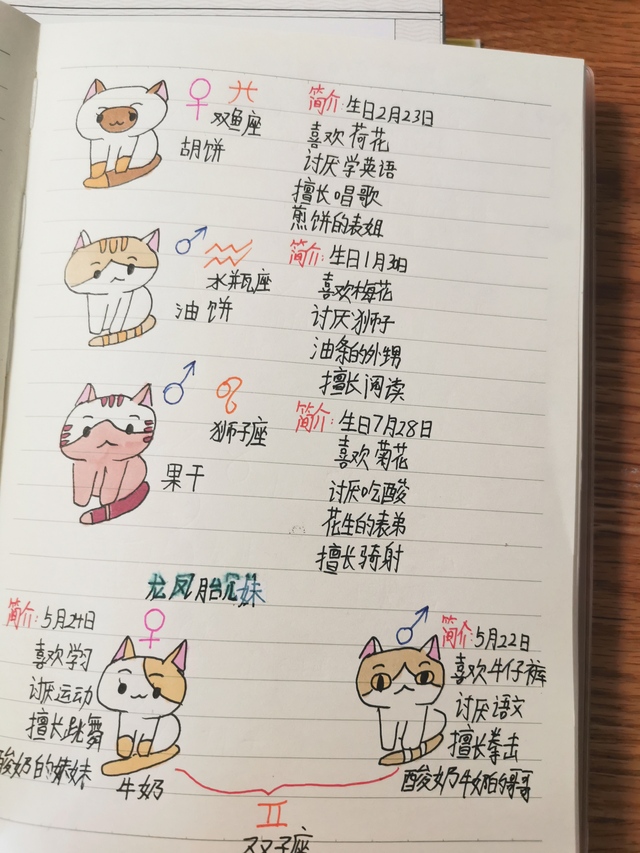 ♀ ♓ 简介: 生日2月23日
双鱼座
喜欢荷花
胡饼
讨厌学英语
擅长唱歌
煎饼的表姐
♂ ♒ 简介: 生日1月30日
水瓶座
喜欢梅花
油饼
讨厌狮子
油条的外甥
擅长阅读
♂ ♌ 简介: 生日7月28日
狮子座
喜欢菊花
果干
讨厌吃酸
花生的表弟
擅长骑射
龙凤胎兄妹
简介: 5月24日
♀
喜欢学习
讨厌运动
擅长跳舞
酸奶的妹妹
牛奶
♂ 简介: 5月22日
喜欢牛仔裤
讨厌语文
擅长拳击
酸奶 牛奶的哥哥
♊
双子座